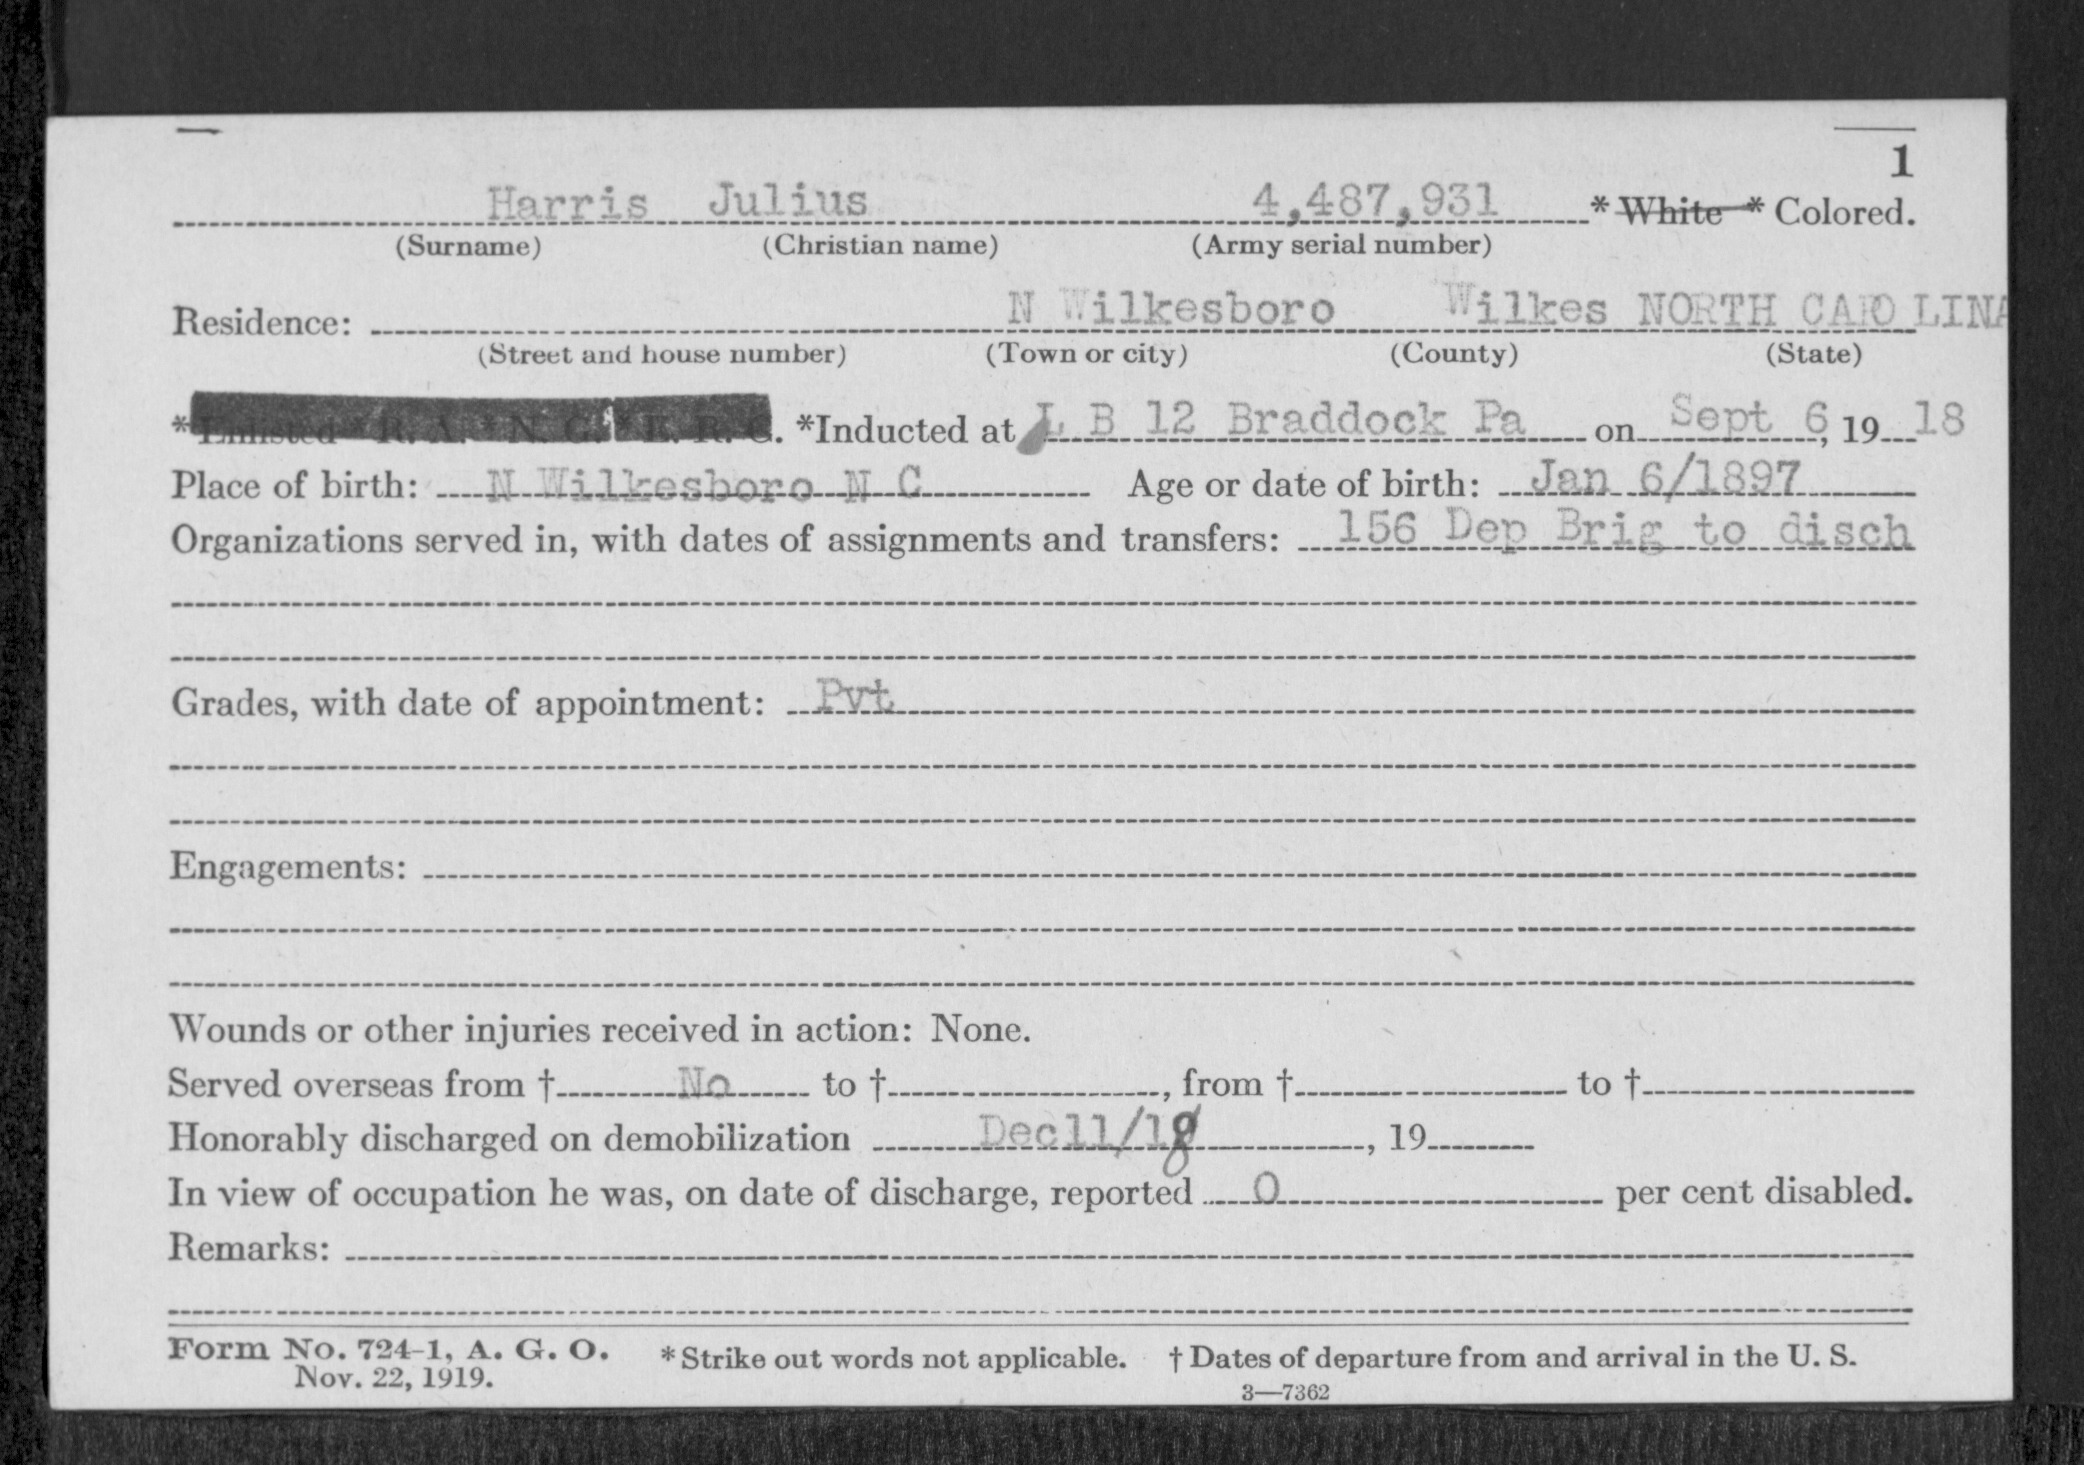 1
Harris Julius 4,487,931 * White * Colored.
(Surname) (Christian name) (Army serial number)
Residence: N Wilkesboro Wilkes NORTH CAROLINA
(Street and house number) (Town or city) (County) (State)
* Enlisted * R. A. * N. G. * E. R. C. *Inducted at L B 12 Braddock Pa on Sept 6, 19 18
Place of birth: N Wilkesboro N C Age or date of birth: Jan 6/1897
Organizations served in, with dates of assignments and transfers: 156 Dep Brig to disch
Grades, with date of appointment: Pvt
Engagements:
Wounds or other injuries received in action: None.
Served overseas from † No to † , from † to †
Honorably discharged on demobilization Dec11/18 , 19
In view of occupation he was, on date of discharge, reported 0 per cent disabled.
Remarks:
Form No. 724-1, A. G. O. * Strike out words not applicable. † Dates of departure from and arrival in the U. S.
Nov. 22, 1919.
3—7362